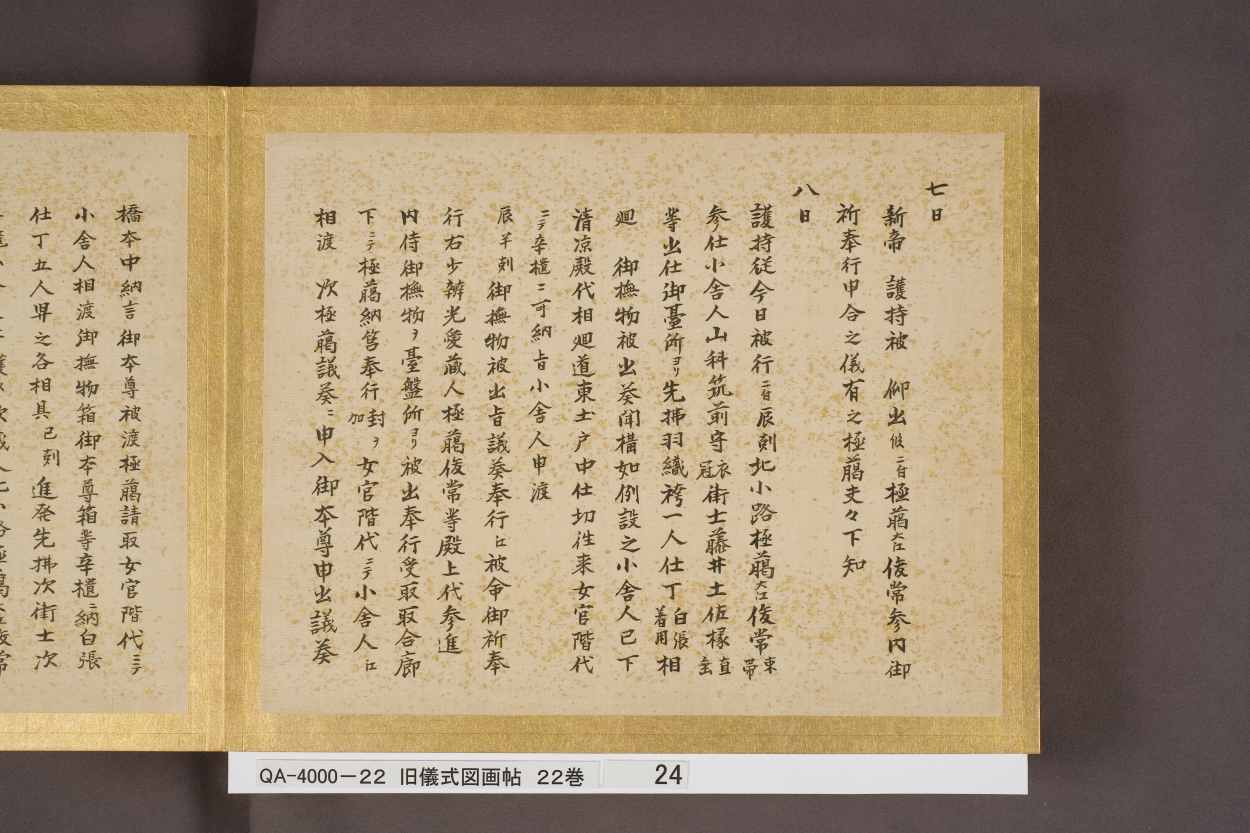 七日
新帝　護持被　仰出候ニ付極﨟大江俊常参内御
祈奉行申合之儀有之極﨟夫々下知
八日
護持従今日被行ニ付辰刻北小路極﨟大江俊常束帯
参仕小舎人山科筑前守衣冠衛士藤井土佐掾直垂
等出仕御臺所ヨリ先拂羽織袴一人仕丁白張着用相
廻　御撫物被出葵間構如例設之小舎人已下
清凉殿代相廻道東土戸中仕切往来女官階代
ニテ辛櫃ニ可納旨小舎人申渡
辰半刻御撫物被出旨議奏奉行江被命御祈奉
行右少辨光愛蔵人極﨟俊常等殿上代参進
内侍御撫物ヲ臺盤所ヨリ被出奉行受取取合廊
下ニテ極﨟納筥奉行加封ヲ女官階代ニテ小舎人江
相渡　次極﨟議奏ニ申入御本尊申出議奏
橋本中納言御本尊被渡極﨟請取女官階代ニテ
小舎人相渡御撫物箱御本尊箱等辛櫃ニ納白張
仕丁五人舁之各相具已刻進発先拂次衛士次
QA-4000-22 旧儀式図画帖 22巻 24